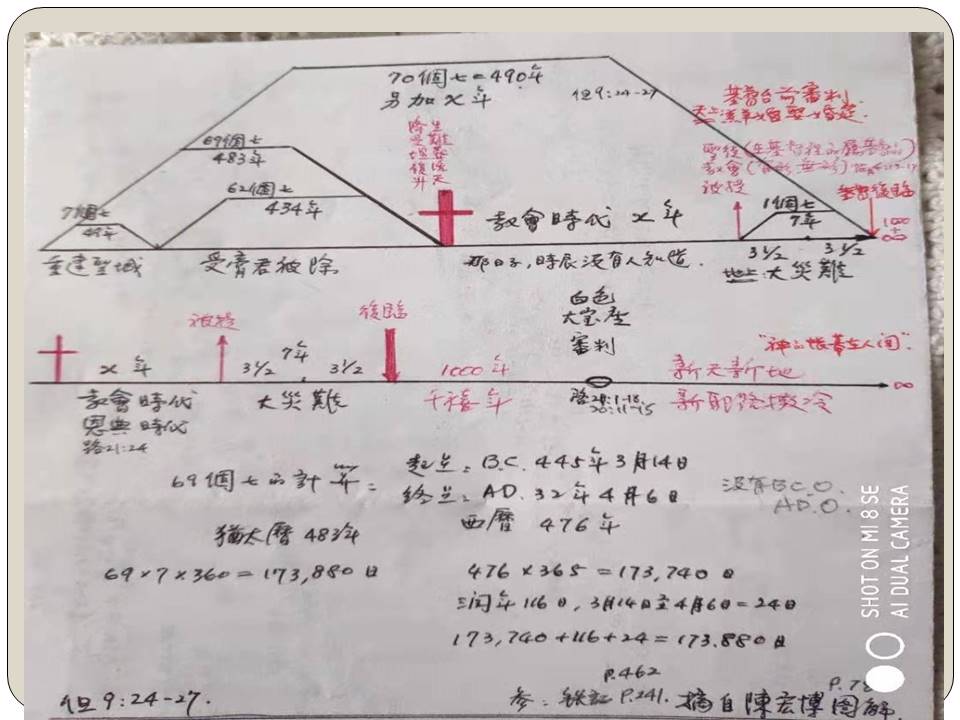 70個七=490年
另加x年
但9:24-27
基督台前審判
降生
受難
埋葬
復活
升天
69個七
483年
62個七
434年
7個七
49年
被提
基督復臨
1個七
7年
1000
+
∞
教會時代 x年
3½ 3½
重建聖城
受膏君被除
那日子,時辰沒有人知道.
地上大災難
白色
大寶座
審判
被提
復臨
"神的帳幕在人間".
x年
3½ 7年 3½
1000年
新天新地
∞
教會時代
恩典時代
路21:24
大災難
千禧年
20:11-15
新耶路撒冷
69個七的計算:
起點: B.C. 445年3月14日
終點: AD. 32年4月6日
西曆 476年
沒有B.C.O.
A.D.O.
猶太曆 483年
69×7×360=173,880日
476×365=173,740日
閏年116日, 3月14日至4月6日=24日
173,740+116+24=173,880日
P.462
但9:24-27.
參: P.241. 摘自陳宏博圖解.
P.78
SHOT ON MI 8 SE
AI DUAL CAMERA